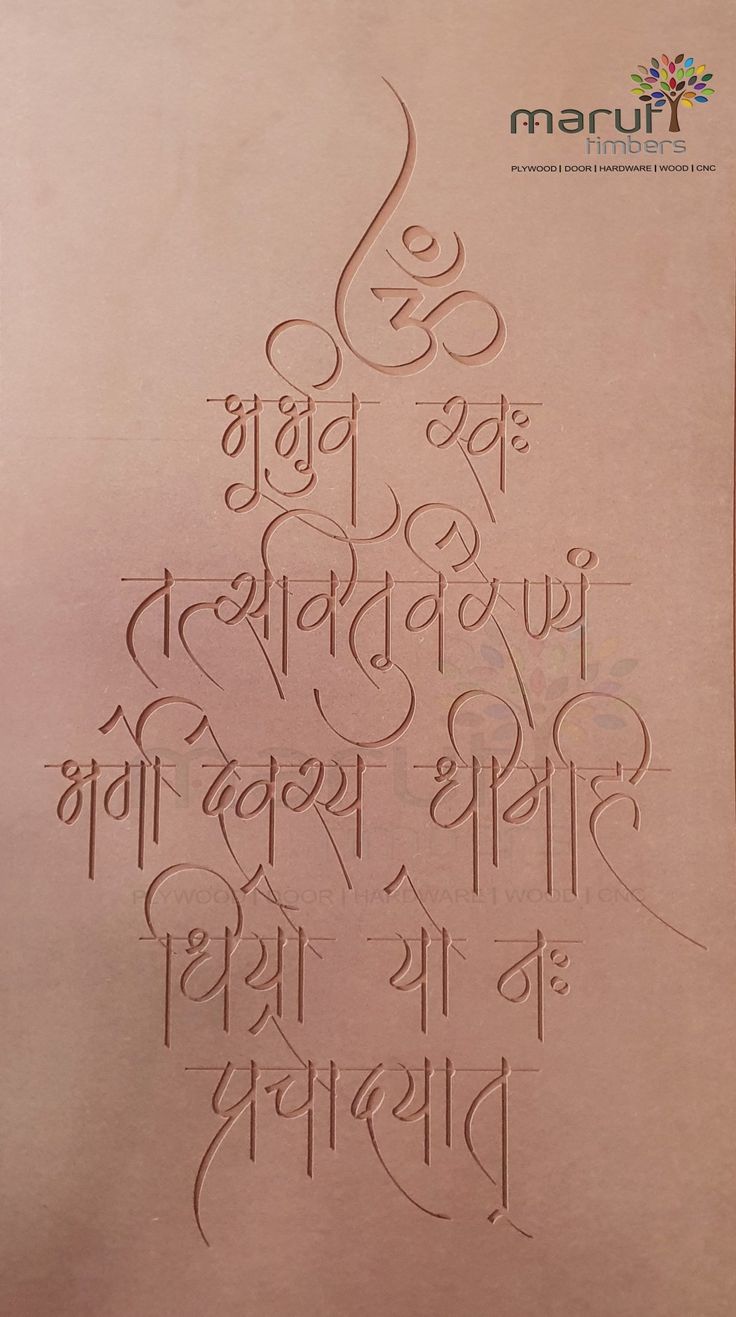 maruti
timbers
PLYWOOD | DOOR | HARDWARE | WOOD | CNC
ॐ
भूर्भुव स्वः
तत्सवितुर्वरेण्यं
भर्गो देवस्य धीमहि
धियो यो नः
प्रचोदयात्
maruti
timbers
PLYWOOD | DOOR | HARDWARE | WOOD | CNC